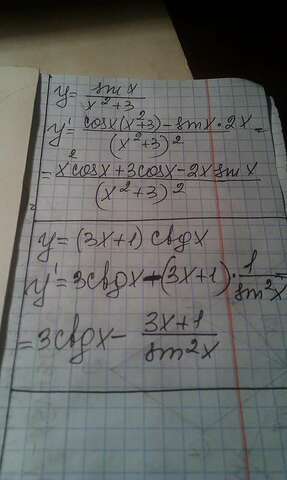 y = sin x / x²+3
y' = cosx(x²+3) - sin x · 2x / (x²+3)² =
= x²cosx + 3cosx - 2x sin x / (x²+3)²
y = (3x+1) ctgx
y' = 3ctgx - (3x+1) · 1 / sin²x
= 3ctgx - 3x+1 / sin²x